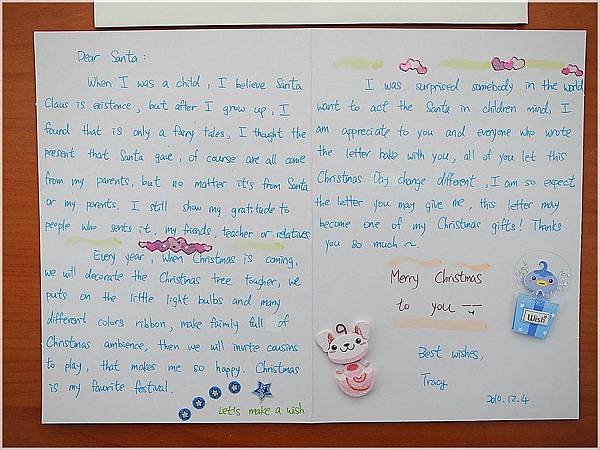 Dear Santa :
When I was a child , I believe Santa
Claus is existence , but after I grow up , I
found that is only a fairy tales , I thought the
present that Santa gave , of course are all come
from my parents, but no matter it's from Santa
or my parents, I still show my gratitude to
people who sents it , my friends, teacher or relatives.
Every year , when Christmas is coming,
we will decorate the Christmas tree tougher, we
puts on the little light bulbs and many
different colors ribbon , make faimly full of
Christmas ambience, then we will invite cousins
to play , that makes me so happy. Christmas
is my favorite festival.
Let's make a wish
I was surprised somebody in the world
want to act the Santa in children mind, I
am appreciate to you and everyone who wrote
the letter bake with you, all of you let this
Christmas Day change different , I am so expect
the letter you may give me , this letter may
become one of my Christmas gifts! Thanks
you so much ~
Merry Christmas
to you
Wish
Best wishes,
Tracy
2010.12.4